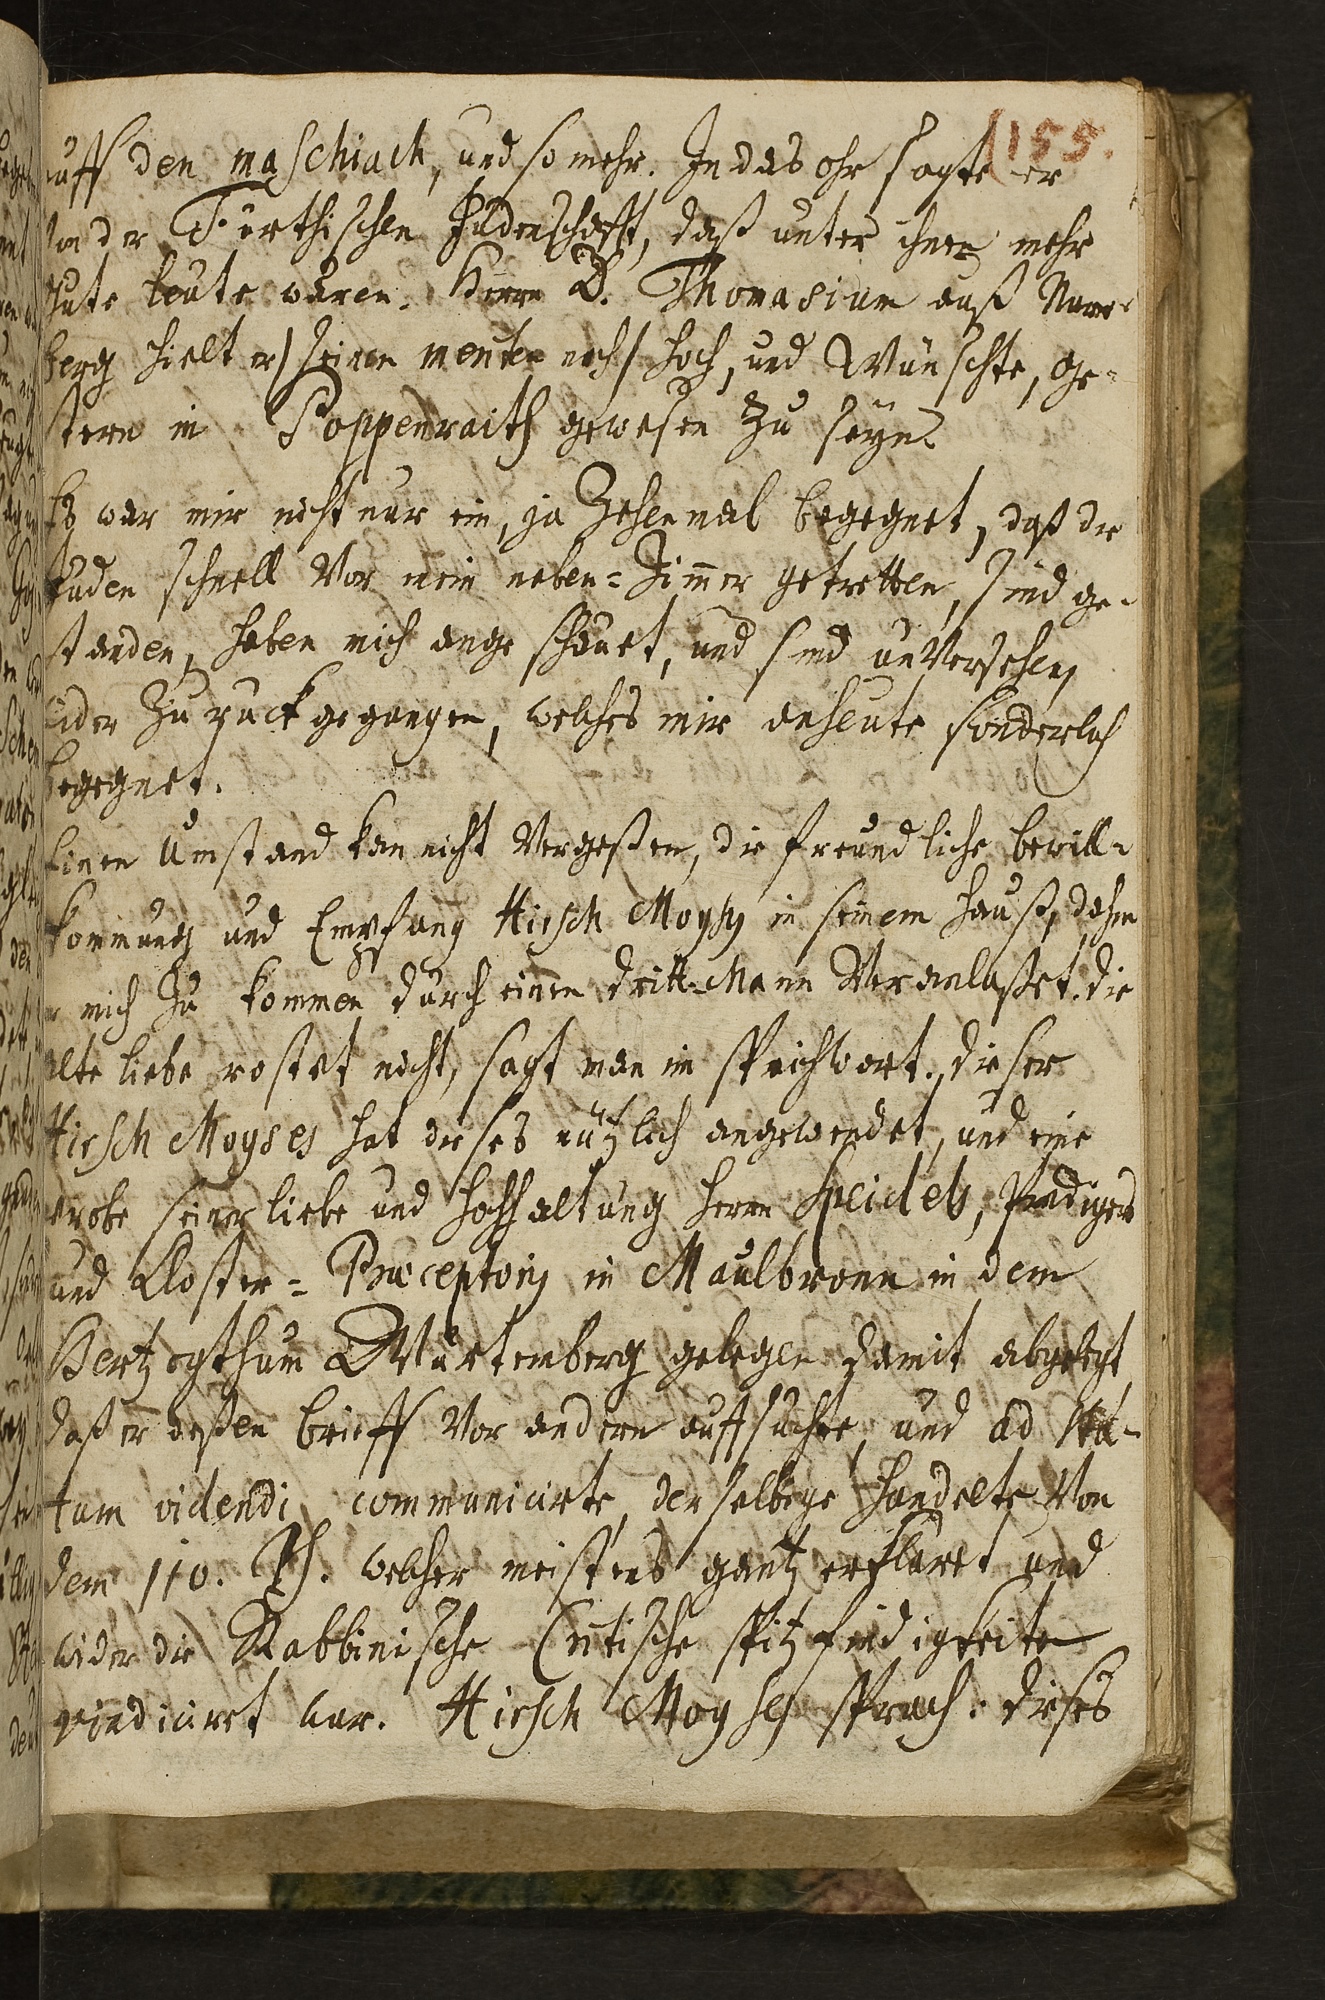 155.
auff den maschiach, und so mehr. In das ohr sagte er
von der Fürthischen Judenschafft, daß unter ihnen mehr
gute leute wären. Herrn D. Thomasium auß Nurn-
berg hielt er / seinen worten nach / hoch, und Wünschte, ge-
stern in Poppenraith gewesen zu seyn.
Es war mir nicht nur ein, ja Zehen mal begegnet, daß die
Juden schnell Vor mein neben-Zimmer getretten, sind ge-
standen, haben mich ange schauet, und sind unVersehens
wider Zu ruck gegangen, welches mir anheute sonderlich
begegnet.
Einen Umstand kan nicht Vergeßen, die freundliche bewill-
kommung und Empfang Hirsch Moyses in seinem Hauß, dahin
er mich zu kommen durch einen dritt-Mann Veranlaßet. die
alte liebe rostet nicht, sagt man im sprichwort. dieser
Hirsch Moyses hat dieses nützlich angewendet, und eine
probe seiner liebe und hochhaltung Herrn Speidels, Predigers
und Closter-Præceptoris in Maulbronn in dem
Hertzogthum Würtemberg gelegen damit abgelegt,
daß er deßen brieff Vor andern auffsuchte, und ad sta-
tum videndi communicirte, derselbige handelte Von
dem 110. Ps. welcher meistens gantz erklärt und
wider die Rabbinische Critische spitzfindigkeiten
vindiciret war. Hirsch Moyses sprach: dieses